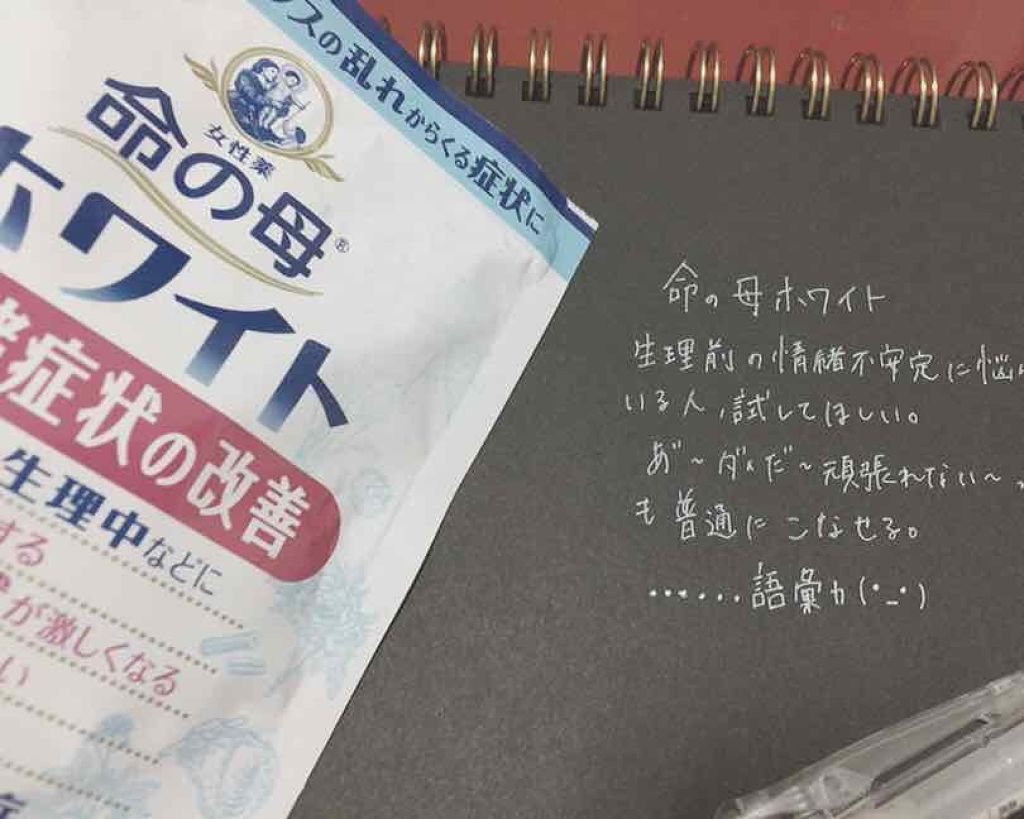 スの乱れからくる症状に
女性薬
命の母®
ホワイト
症状の改善
生理中などに
する
が激しくなる
い
命の母ホワイト
生理前の情緒不安定に悩
いる人,試してほしい。
あ゛〜だんだ〜頑張れない〜
も普通にこなせる。
......語彙力(•_•)